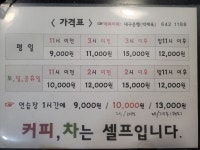 < 가격표 > 대구은행 642 1188
평 일 11시 이전 3시 이전 3시 이후 밤11시 이후
9,000원 11,000원 15,000원 12,000원
토,일,공휴일 11시 이전 2시 이전 2시 이후 밤11시 이후
10,000원 12,000원 18,000원 15,000원
☞ 연습장 1시간에 9,000원 / 10,000원 / 13,000원
커피,차는 셀프입니다.